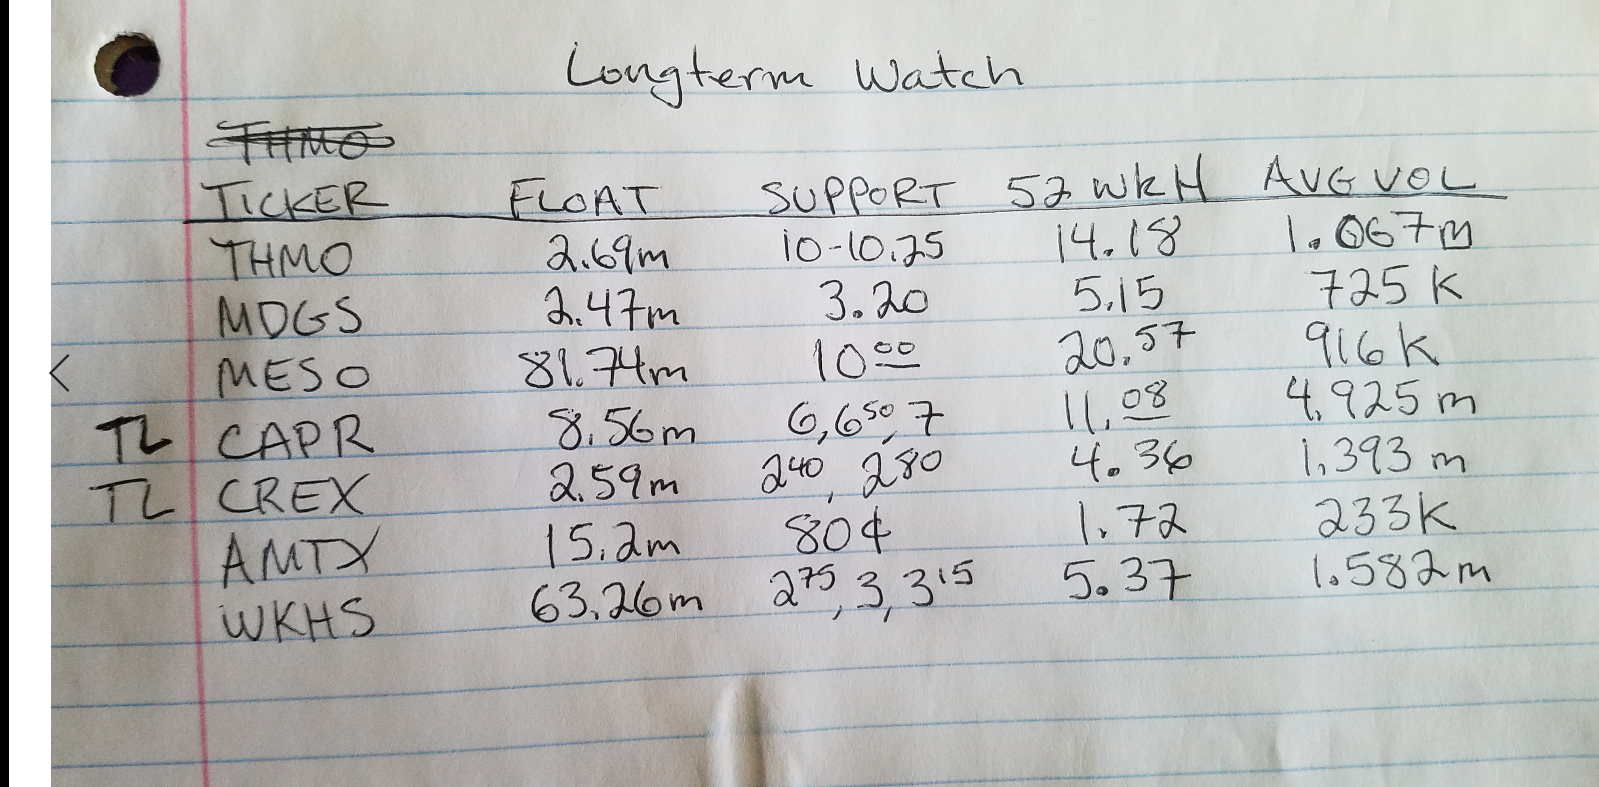 Longterm Watch
THMO
TICKER FLOAT SUPPORT 52 WKH AVG VOL
THMO 2.69m 10-10.25 14.18 1.067m
MDGS 2.47m 3.20 5.15 725 K
< MESO 81.74m 10 00 20.57 916 K
TL CAPR 8.56m 6, 6 50, 7 11.08 4.925 m
TL CREX 2.59m 2 40, 2 80 4.36 1.393 m
AMTX 15.2m 80¢ 1.72 233K
WKHS 63.26m 2 75, 3, 3 15 5.37 1.582m